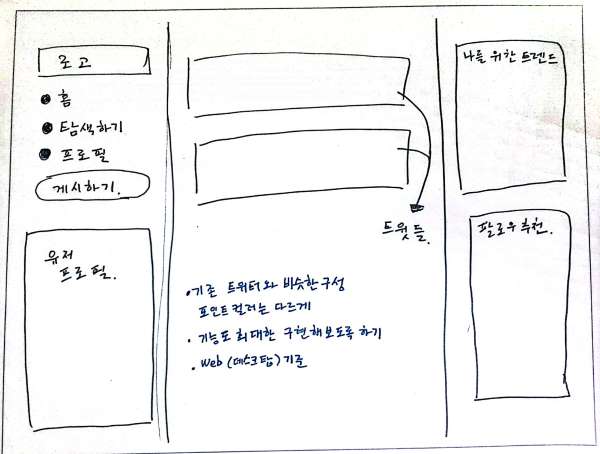 로고
홈
탐색하기
프로필
게시하기.
유저
프로필.
트윗들.
• 기존 트위터와 비슷한 구성
포인트 컬러는 다르게
• 기능도 최대한 구현해보도록 하기
• Web (데스크탑) 기준
나를 위한 트렌드
팔로우 추천.